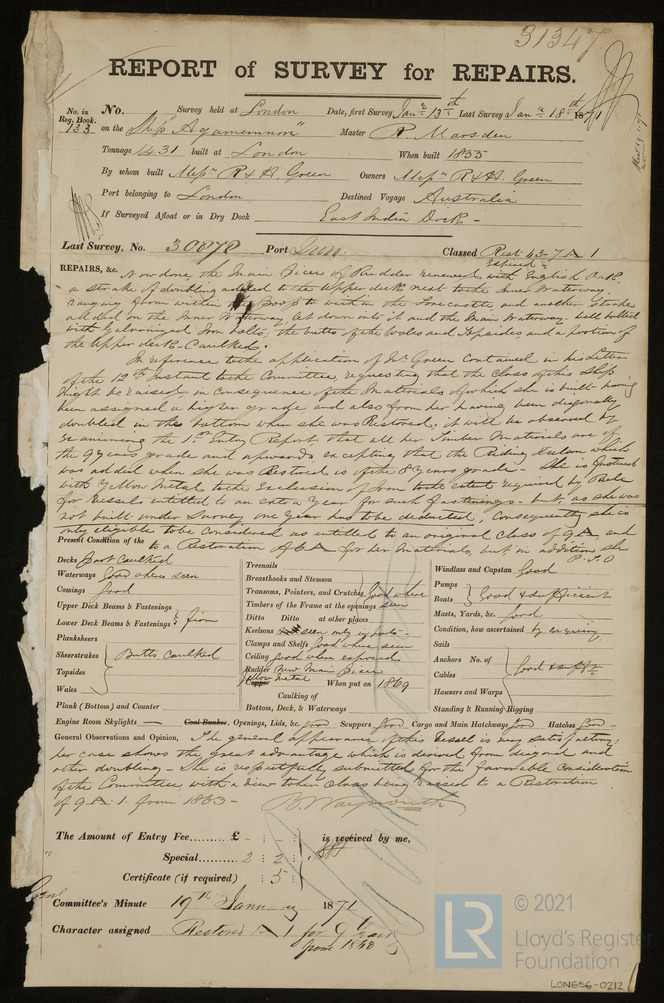 31347
REPORT of SURVEY for REPAIRS.
No. in Reg. Book. 133
No. Survey held at London Date, first Survey Jany 13th Last Survey Jany 18th 1871
on the Ship "Agamemnon" Master R. Marsden
Tonnage 1431 built at London When built 1855
By whom built Messrs R & H. Green Owners Messrs R & H. Green
Port belonging to London Destined Voyage Australia
If Surveyed Afloat or in Dry Dock East India Dock -
Last Survey, No. 30878 Port Lon. Classed Rest 43-7 A 1
Expired -
REPAIRS, &c. Now done, the Main Piece of Rudder renewed with English Oak,
a strake of doubling added to the Upper deck next to the Inner Waterway,
ranging from within the Poop to within the Forecastle, and another Strake
added on the Inner Waterway let down into it and the Main Waterway. Well bolted
with Galvanized Iron bolts, the butts of the Wales and Topsides, and a portion of
the Upper deck - Caulked.
In reference to the application of Mr Green Contained in his Letter
of the 12th Instant to the Committee, requesting that the Class of this Ship
might be raised, in consequence of the Materials of which she is built having
been assigned a higher grade, and also from her having been diagonally
doubled in the bottom when she was Restored, it will be observed by
examining the 1st Entry Report that all her Timber Materials are of
the 9 years grade and upwards, excepting that the Riding Keelson which
was added when she was Restored is of the 8 years grade - She is fastened
with Yellow Metal to the Exclusion of Iron to the extent required by Rule
for Vessels entitled to an extra Year for such fastenings - but, as she was
not built under Survey one Year had to be deducted, Consequently she is
only eligible to be considered as entitled to an original Class of 9 A, and
to a Restoration of 6 A for her Materials, but in addition she
P.T.O
Present Condition of the
Decks Part Caulked
Waterways Good where seen
Comings Good
Upper Deck Beams & Fastenings
Lower Deck Beams & Fastenings } firm
Planksheers
Sheerstrakes
Topsides
Wales } Butts Caulked
Plank (Bottom) and Counter
Treenails
Breasthooks and Stemson
Transoms, Pointers, and Crutches Good where
Timbers of the Frame at the openings seen
Ditto Ditto at other places
Keelsons seen only in parts -
Clamps and Shelfs Good where seen
Ceiling Good where exposed
Rudder New Main Piece
Yellow Metal
Copper When put on 1869
Caulking of
Bottom, Deck, & Waterways
Windlass and Capstan Good
Pumps
Boats } Good & sufficient
Masts, Yards, &c. Good
Condition, how ascertained by enquiry
Sails
Anchors No. of
Cables } Good & suffict
Hausers and Warps
Standing & Running Rigging
Engine Room Skylights — Coal Bunker, Openings, Lids, &c. Good Scuppers Good Cargo and Main Hatchways Good Hatches Good -
General Observations and Opinion, The general appearance of this Vessel is very satisfactory;
her case shows the great advantage which is derived from diagonal and
other doubling - She is respectfully submitted for the favorable Consideration
of the Committee, with a view to her Class being raised to a Restoration
of 9 A. 1. from 1863 -
B. Waymouth
The Amount of Entry Fee......... £ - : - : is received by me,
Special......... 2 : 2 :
Certificate (if required) : 5 :
Committee's Minute 19th January 1871
Character assigned Restored A 1 for 9 Years
from 1868
LR
© 2021
Lloyd's Register
Foundation
LON656-0212